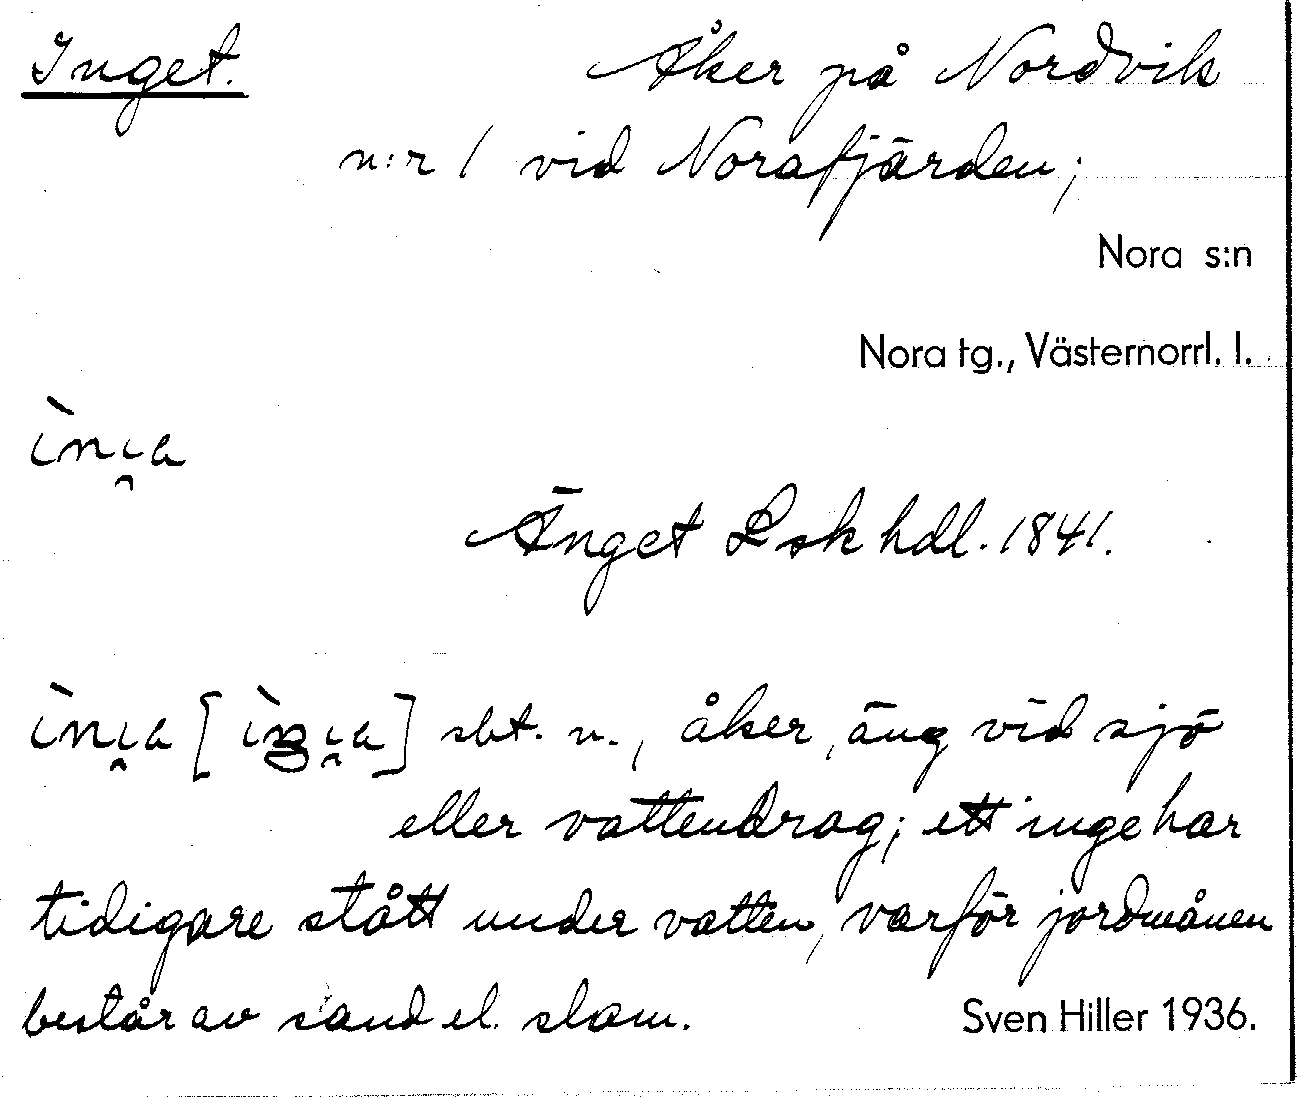 Inget. Åker på Nordvik
n:r 1 vid Norafjärden;
Nora s:n
Nora tg., Västernorrl. l.
ìni̯a
Änget Lskhdl. 1841.
ìni̯a [ ] sbt. n., åker, äng vid sjö
eller vattendrag; ett inge har
tidigare stått under vatten, varför jordmånen
består av sand el. slam. Sven Hiller 1936.